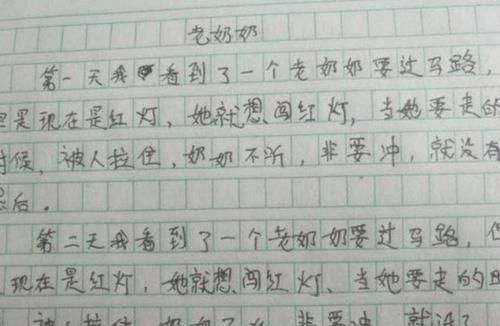 老奶奶
第一天我看到了一个老奶奶要过马路,
是现在是红灯,她就想闯红灯,当她要走的
时候,被人拉住,奶奶不听,非要冲,就没有
然后。
第二天我看到了一个老奶奶要过马路,但
现在是红灯,她就想闯红灯、当她要走的时
被人拉住,奶奶不听,非要冲,就没了